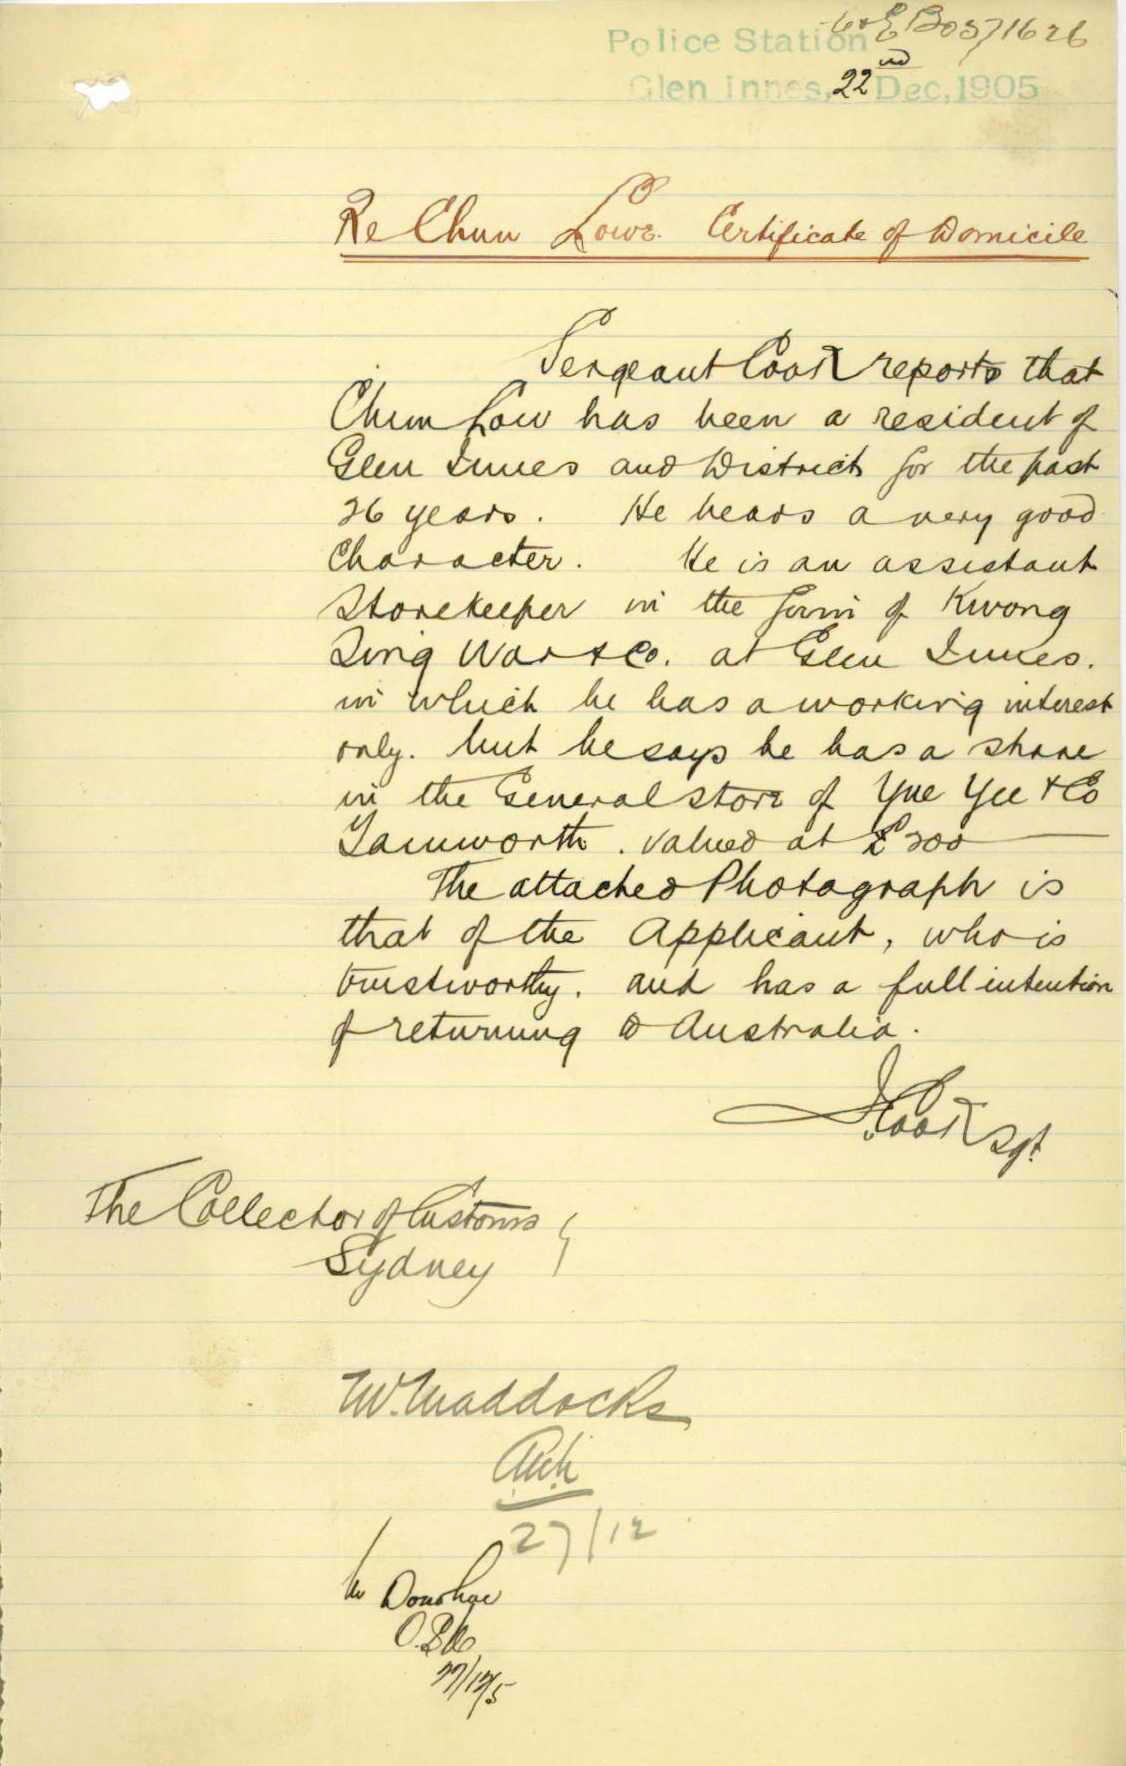 Police Station
Glen Innes, 22nd Dec, 1905
Re Chun Lowe. Certificate of Domicile
Sergeant Cook reports that
Chun Low has been a resident of
Glen Innes and District for the past
26 years. He bears a very good
Character. He is an assistant
Storekeeper in the firm of Kwong
Sing War & Co. at Glen Innes.
in which he has a working interest
only. but he says he has a share
in the General Store of Yue Yee & Co
Tamworth. valued at £200
The attached Photograph is
that of the Applicant, who is
trustworthy. and has a full intention
of returning to Australia.
J. Cook Sgt.
The Collector of Customs
Sydney
W. Maddocks
27/12
Mr Donohoe
27/12/5